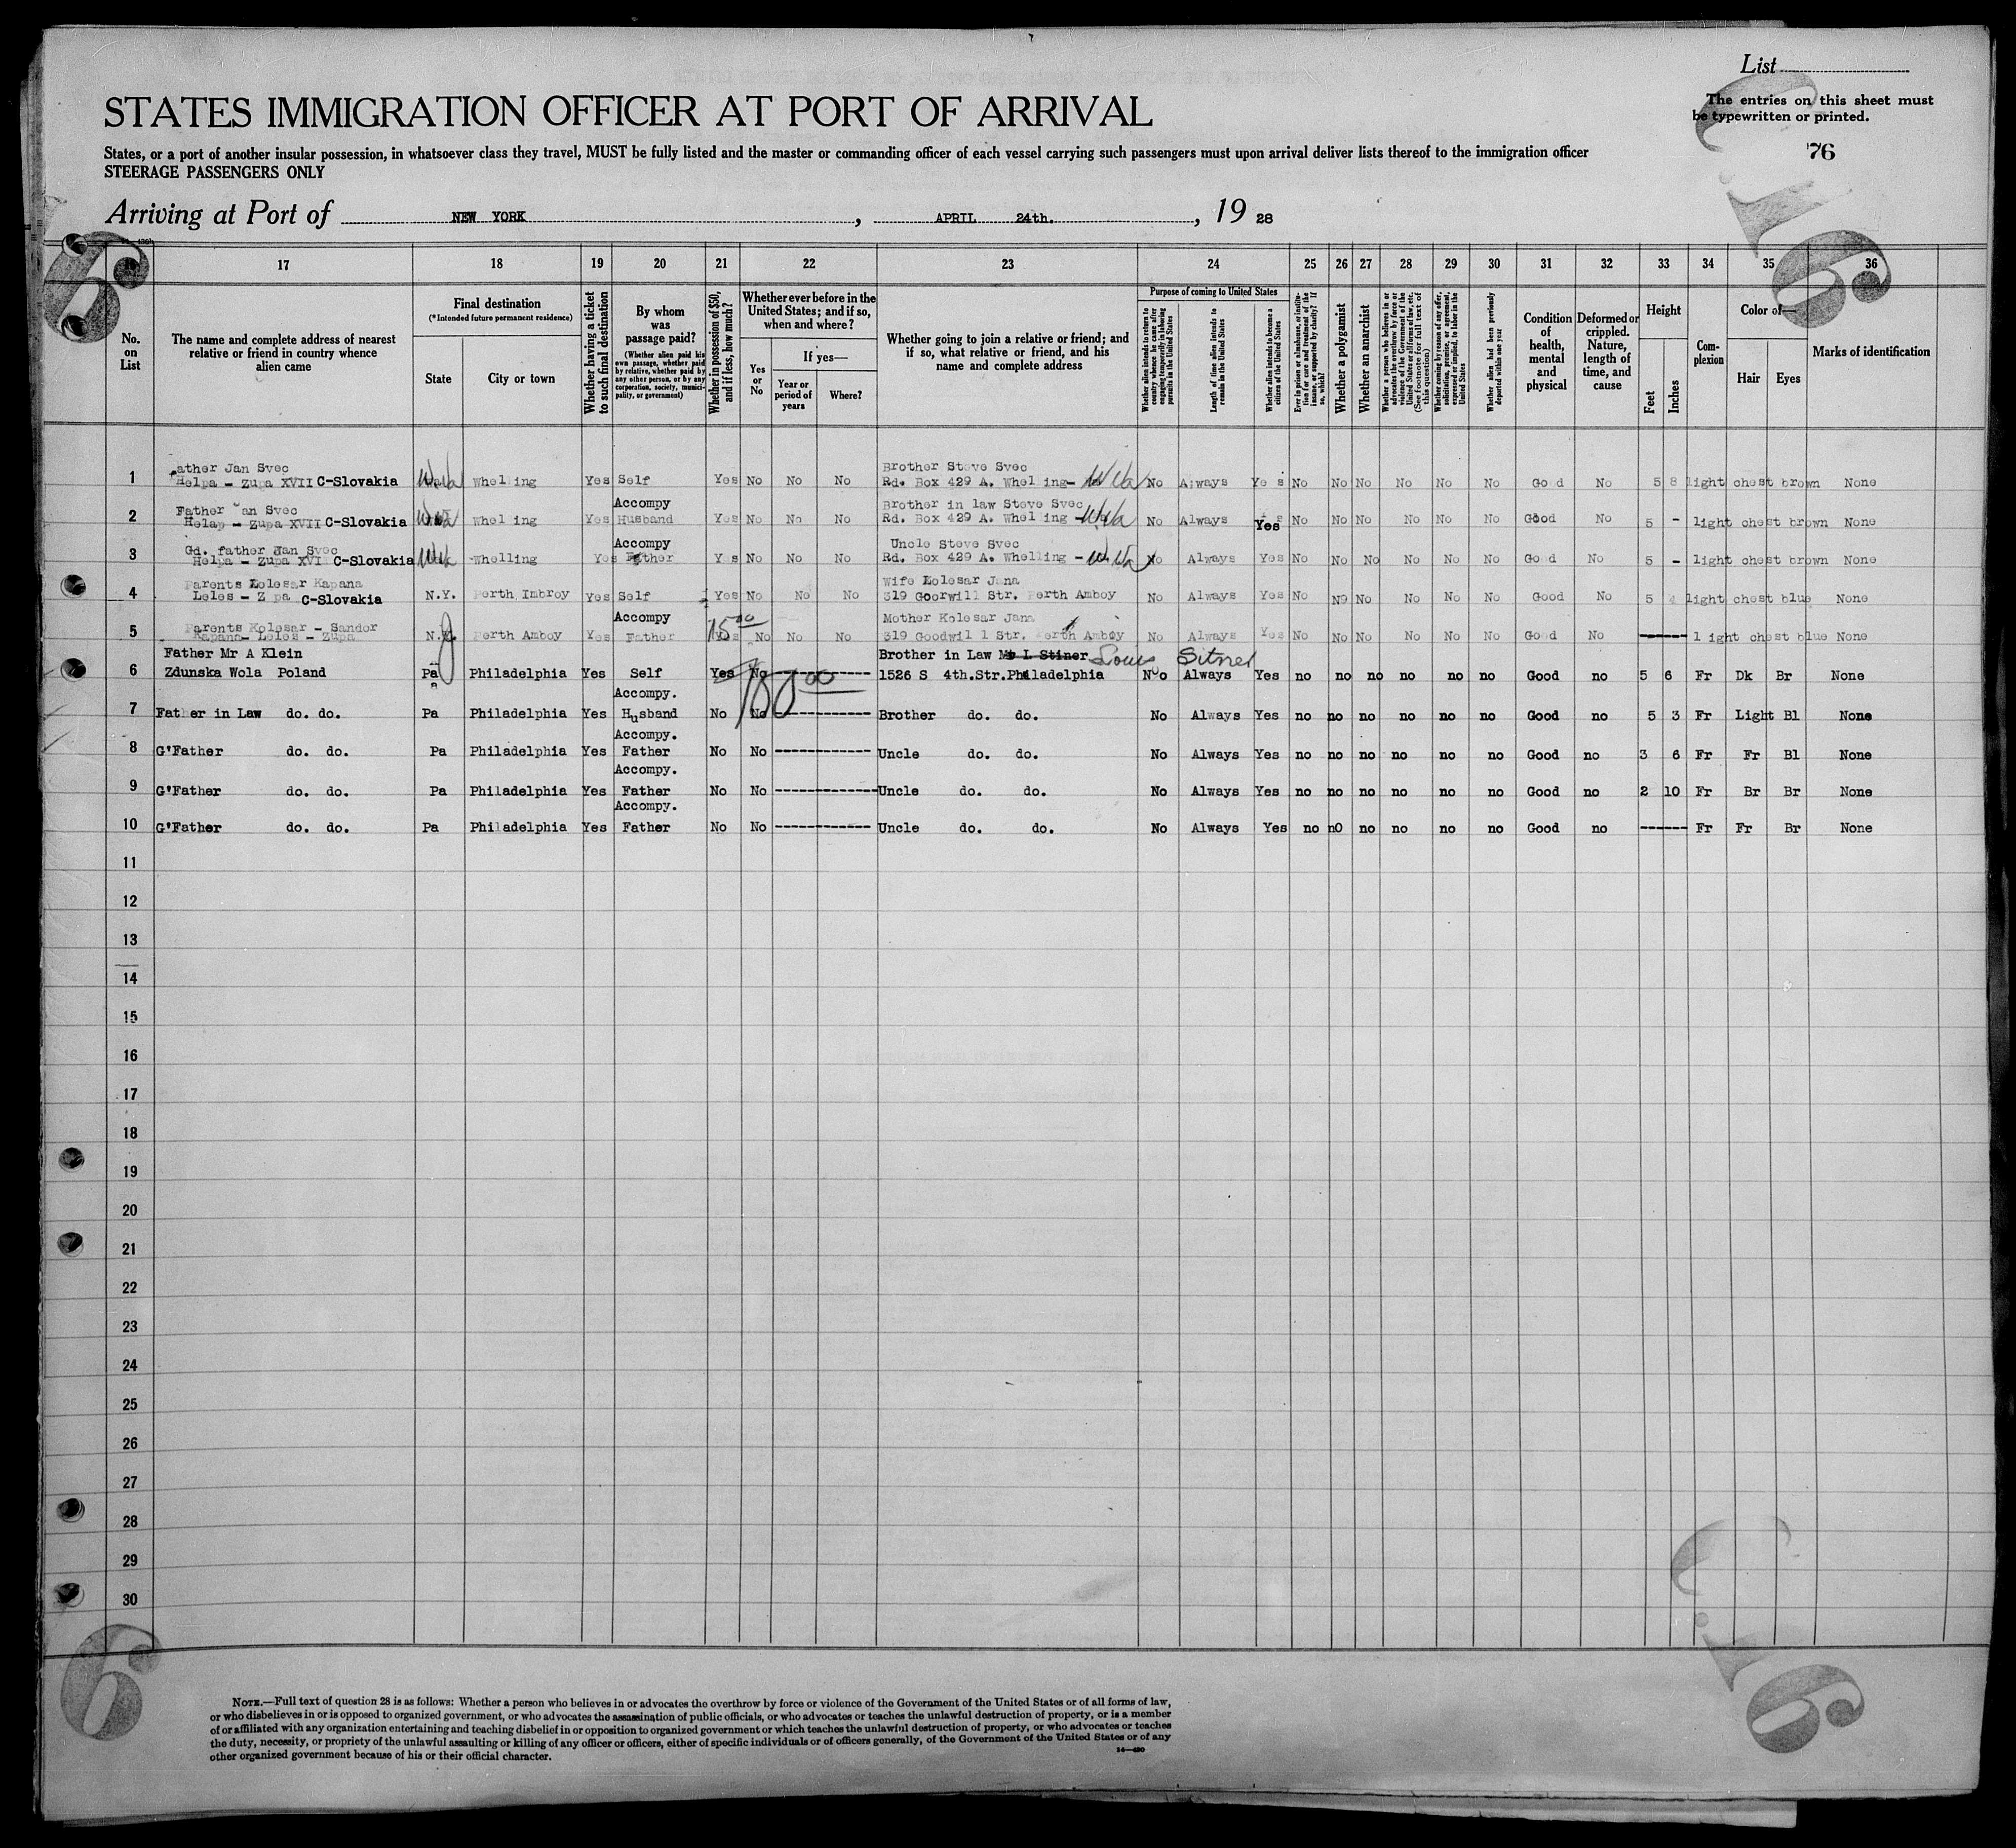 List
STATES IMMIGRATION OFFICER AT PORT OF ARRIVAL
The entries on this sheet must
be typewritten or printed.
States, or a port of another insular possession, in whatsoever class they travel, MUST be fully listed and the master or commanding officer of each vessel carrying such passengers must upon arrival deliver lists thereof to the immigration officer
STEERAGE PASSENGERS ONLY
76
Arriving at Port of NEW YORK, APRIL 24th., 19 28
17 18 19 20 21 22 23 24 25 26 27 28 29 30 31 32 33 34 35 36
No. on List
The name and complete address of nearest relative or friend in country whence alien came
Final destination
(*Intended future permanent residence)
State
City or town
Whether having a ticket to such final destination
By whom was passage paid?
(Whether alien paid his own passage, whether paid by relative, whether paid by any other person, or by any corporation, society, municipality, or government)
Whether in possession of $50, and if less, how much?
Whether ever before in the United States; and if so, when and where?
Yes or No
If yes—
Year or period of years
Where?
Whether going to join a relative or friend; and if so, what relative or friend, and his name and complete address
Purpose of coming to United States
Whether alien intends to return to country whence he came after engaging temporarily in laboring pursuits in the United States
Length of time alien intends to remain in the United States
Whether alien intends to become a citizen of the United States
Ever in prison or almshouse, or institution for care and treatment of the insane, or supported by charity? If so, which?
Whether a polygamist
Whether an anarchist
Whether a person who believes in or advocates the overthrow by force or violence of the Government of the United States or all forms of law, etc. (See footnote for full text of this question)
Whether coming by reason of any offer, solicitation, promise, or agreement, expressed or implied, to labor in the United States
Whether alien had been previously deported within one year
Condition of health, mental and physical
Deformed or crippled. Nature, length of time, and cause
Height
Feet
Inches
Complexion
Color of—
Hair
Eyes
Marks of identification
ather Jan Svec Brother Steve Svec
1 Helpa - Zupa XVII C-Slovakia W.Va Whelling Yes Self Yes No No No Rd. Box 429 A. Whelling- W Va No Always Yes No No No No No No Good No 5 8 light chest brown None
Father an Svec Accompy Brother in law Steve Svec
2 Helap - Zupa XVII C-Slovakia W.Va Whel ing Yes Husband Yes No No No Rd. Box 429 A. Whel ing - W.Va No Always Yes No No No No No No Good No 5 - light chest brown None
Gd. father Jan Svec Accompy Uncle Steve Svec
3 Helpa - Zupa XVI C-Slovakia W.Va Whelling Yes Father Yes No No No Rd. Box 429 A. Whelling - W.Va No Always Yes No No No No No No Good No 5 - light chest brown None
Parents Kolesar Kapana Wife Kolesar Jana
4 Leles - Z pa C-Slovakia N.Y. Perth Imbroy Yes Self Yes No No No 319 Goorwill Str. Perth Amboy No Always Yes No No No No No No Good No 5 4 light chest blue None
Parents Kolesar - Sandor Accompy 15 00 Mother Kolesar Jana
5 Kapana- Leles - Zupa N.J. Perth Amboy Yes Father Yes No No No 319 Goodwil l Str. Perth Amboy No Always Yes No No No No No No Good No ------ l ight chest blue None
Father Mr A Klein Brother in Law Mr L Stiner Louis Sitner
6 Zdunska Wola Poland Pa Philadelphia Yes Self Yes No ------------ 1526 S 4th.Str.Philadelphia No Always Yes no no no no no no Good no 5 6 Fr Dk Br None
Accompy. 100 00
7 Father in Law do. do. Pa Philadelphia Yes Husband No No ------------ Brother do. do. No Always Yes no no no no no no Good no 5 3 Fr Light Bl None
Accompy.
8 G'Father do. do. Pa Philadelphia Yes Father No No ------------ Uncle do. do. No Always Yes no no no no no no Good no 3 6 Fr Fr Bl None
Accompy.
9 G'Father do. do. Pa Philadelphia Yes Father No No ------------ Uncle do. do. No Always Yes no no no no no no Good no 2 10 Fr Br Br None
Accompy.
10 G'Father do. do. Pa Philadelphia Yes Father No No ------------ Uncle do. do. No Always Yes no nO no no no no Good no ------ Fr Fr Br None
11
12
13
14
15
16
17
18
19
20
21
22
23
24
25
26
27
28
29
30
NOTE.—Full text of question 28 is as follows: Whether a person who believes in or advocates the overthrow by force or violence of the Government of the United States or of all forms of law,
or who disbelieves in or is opposed to organized government, or who advocates the assassination of public officials, or who advocates or teaches the unlawful destruction of property, or is a member
of or affiliated with any organization entertaining and teaching disbelief in or opposition to organized government or which teaches the unlawful destruction of property, or who advocates or teaches
the duty, necessity, or propriety of the unlawful assaulting or killing of any officer or officers, either of specific individuals or of officers generally, of the Government of the United States or of any
other organized government because of his or their official character.
14—430